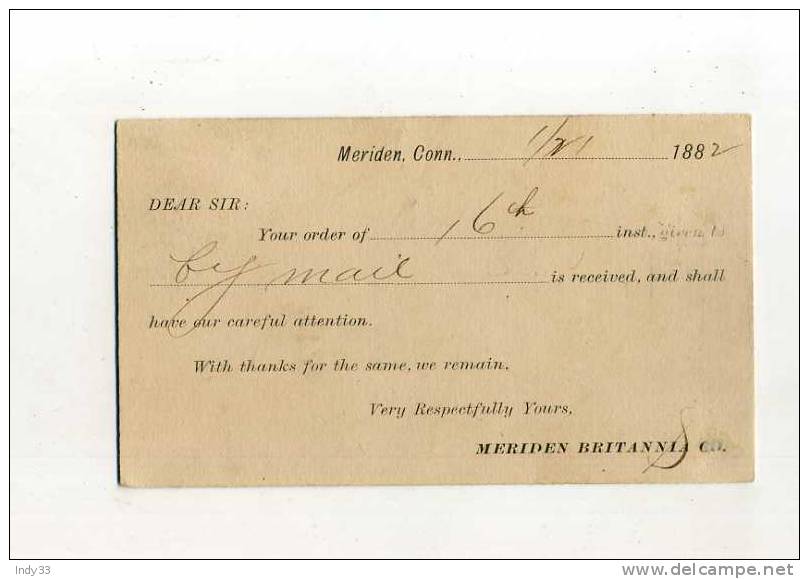 Meriden, Conn., 1/21 1882
DEAR SIR:
Your order of 16th inst., given to
by mail is received, and shall
have our careful attention.
With thanks for the same, we remain,
Very Respectfully Yours,
MERIDEN BRITANNIA CO.
Indy33
www.delcampe.net